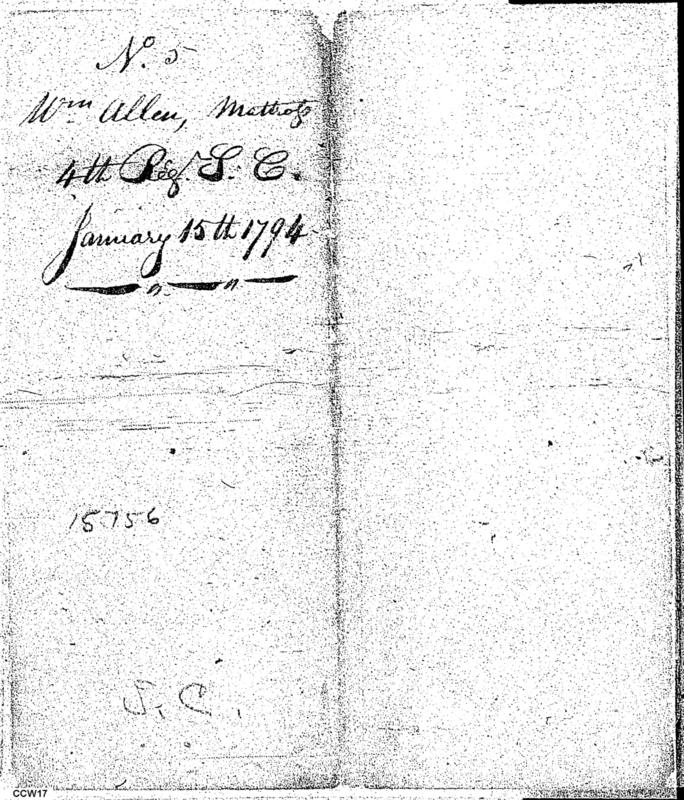 No. 5
Wm Allen, Mattross
4th Regt. S. C.
January 15th 1794
15756
S. C.
CCW17